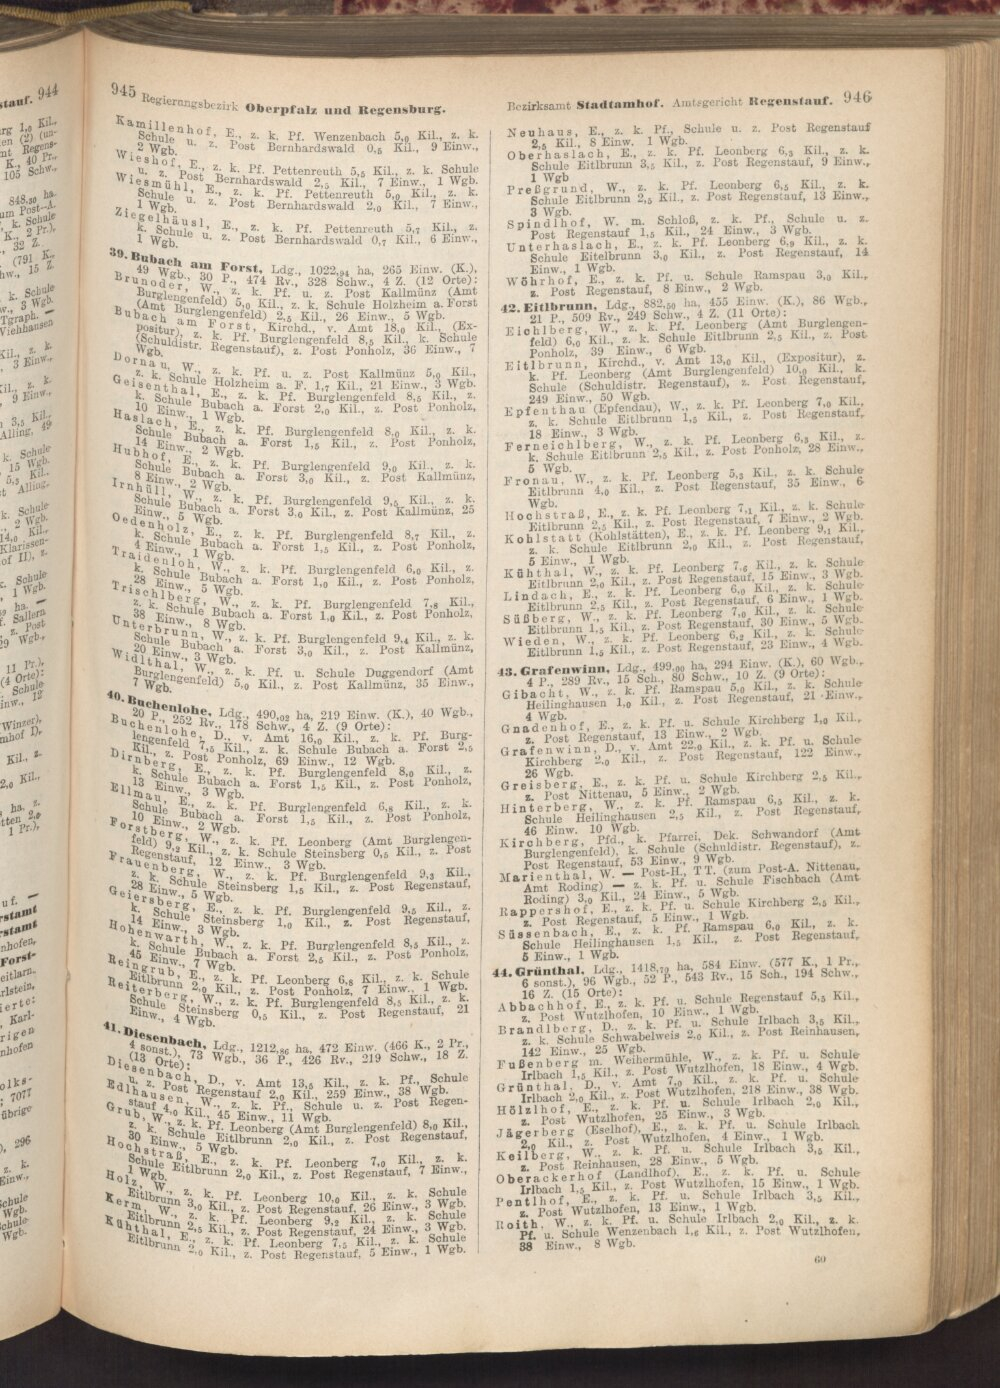 945 Regierungsbezirk Oberpfalz und Regensburg.
Kamillenhof, E., z. k. Pf. Wenzenbach 5,0 Kil., z. k.
Schule u. z. Post Bernhardswald 0,5 Kil., 9 Einw.,
2 Wgb.
Wieshof, E., z. k. Pf. Pettenreuth 5,5 Kil., z. k. Schule
u. z. Post Bernhardswald 2,5 Kil., 7 Einw., 1 Wgb.
Wiesmühl, E., z. k. Pf. Pettenreuth 5,0 Kil., z. k.
Schule u. z. Post Bernhardswald 2,0 Kil., 7 Einw.,
1 Wgb.
Ziegelhäusl, E., z. k. Pf. Pettenreuth 5,7 Kil., z.
k. Schule u. z. Post Bernhardswald 0,7 Kil., 6 Einw.,
1 Wgb.
39. Bubach am Forst, Ldg., 1022,94 ha, 265 Einw. (K.),
49 Wgb., 30 P., 474 Rv., 328 Schw., 4 Z. (12 Orte):
Brunoder, W., z. k. Pf. u. z. Post Kallmünz (Amt
Burglengenfeld) 5,0 Kil., z. k. Schule Holzheim a. Forst
(Amt Burglengenfeld) 2,5 Kil., 26 Einw., 5 Wgb.
Bubach am Forst, Kirchd., v. Amt 18,0 Kil., (Ex-
positur), z. k. Pf. Burglengenfeld 8,5 Kil., k. Schule
(Schuldistr. Regenstauf), z. Post Ponholz, 36 Einw., 7
Wgb.
Dornau, W., z. k. Pf. u. z. Post Kallmünz 5,0 Kil.,
z. k. Schule Holzheim a. F. 1,7 Kil., 21 Einw., 3 Wgb.
Geisenthal, E., z. k. Pf. Burglengenfeld 8,5 Kil., z.
k. Schule Bubach a. Forst 2,0 Kil., z. Post Ponholz,
10 Einw., 1 Wgb.
Haslach, E., z. k. Pf. Burglengenfeld 8,0 Kil., z. k.
Schule Bubach a. Forst 1,5 Kil., z. Post Ponholz,
14 Einw., 2 Wgb.
Hubhof, E., z. k. Pf. Burglengenfeld 9,0 Kil., z. k.
Schule Bubach a. Forst 3,0 Kil., z. Post Kallmünz,
8 Einw., 2 Wgb.
Irnhüll, W., z. k. Pf. Burglengenfeld 9,5 Kil., z. k.
Schule Bubach a. Forst 3,0 Kil., z. Post Kallmünz, 25
Einw., 5 Wgb.
Oedenholz, E., z. k. Pf. Burglengenfeld 8,7 Kil., z.
k. Schule Bubach a. Forst 1,5 Kil., z. Post Ponholz,
4 Einw., 1 Wgb.
Traidenloh, W., z. k. Pf. Burglengenfeld 6,0 Kil., z.
k. Schule Bubach a. Forst 1,0 Kil., z. Post Ponholz,
28 Einw., 5 Wgb.
Trischlberg, W., z. k. Pf. Burglengenfeld 7,8 Kil.,
z. k. Schule Bubach a. Forst 1,0 Kil., z. Post Ponholz,
38 Einw., 8 Wgb.
Unterbrunn, W., z. k. Pf. Burglengenfeld 9,4 Kil., z. k.
Schule Bubach a. Forst 3,0 Kil., z. Post Kallmünz,
20 Einw., 3 Wgb.
Widlthal, W., z. k. Pf. u. Schule Duggendorf (Amt
Burglengenfeld) 5,0 Kil., z. Post Kallmünz, 35 Einw.,
7 Wgb.
40. Buchenlohe, Ldg., 490,02 ha, 219 Einw. (K.), 40 Wgb.,
20 P., 252 Rv., 178 Schw., 4 Z. (9 Orte):
Buchenlohe, D., v. Amt 16,0 Kil., z. k. Pf. Burg-
lengenfeld 7,5 Kil., z. k. Schule Bubach a. Forst 2,5
Kil., z. Post Ponholz, 69 Einw., 12 Wgb.
Dirnberg, E., z. k. Pf. Burglengenfeld 8,0 Kil., z.
k. Schule Bubach a. Forst 1,5 Kil., z. Post Ponholz,
13 Einw., 3 Wgb.
Ellmau, E., z. k. Pf. Burglengenfeld 6,8 Kil., z. k.
Schule Bubach a. Forst 1,5 Kil., z. Post Ponholz,
10 Einw., 2 Wgb.
Forstberg, W., z. k. Pf. Leonberg (Amt Burglengen-
feld) 9,2 Kil., z. k. Schule Steinsberg 0,5 Kil., z. Post
Regenstauf, 12 Einw., 3 Wgb.
Frauenberg, W., z. k. Pf. Burglengenfeld 9,3 Kil.,
z. k. Schule Steinsberg 1,5 Kil., z. Post Regenstauf,
28 Einw., 5 Wgb.
Geiersberg, E., z. k. Pf. Burglengenfeld 9,5 Kil., z.
k. Schule Steinsberg 1,0 Kil., z. Post Regenstauf,
14 Einw., 3 Wgb.
Hohenwarth, W., z. k. Pf. Burglengenfeld 8,5 Kil., z.
k. Schule Bubach a. Forst 2,5 Kil., z. Post Ponholz,
45 Einw., 7 Wgb.
Reingrub, E., z. k. Pf. Leonberg 6,8 Kil., z. k. Schule
Eitlbrunn 2,0 Kil., z. Post Ponholz, 7 Einw., 1 Wgb.
Reiterberg, W., z. k. Pf. Burglengenfeld 8,5 Kil., z. k.
Schule Steinsberg 0,5 Kil., z. Post Regenstauf, 21
Einw., 4 Wgb.
41. Diesenbach, Ldg., 1212,86 ha, 472 Einw. (466 K., 2 Pr.,
4 sonst.), 73 Wgb., 36 P., 426 Rv., 219 Schw., 18 Z.
(13 Orte):
Diesenbach, D., v. Amt 13,5 Kil., z. k. Pf., Schule
u. z. Post Regenstauf 2,0 Kil., 259 Einw., 38 Wgb.
Edlhausen, W., z. k. Pf., Schule u. z. Post Regen-
stauf 4,0 Kil., 45 Einw., 11 Wgb.
Grub, W., z. k. Pf. Leonberg (Amt Burglengenfeld) 8,0 Kil.,
z. k. Schule Eitlbrunn 2,0 Kil., z. Post Regenstauf,
30 Einw., 5 Wgb.
Hochstraß, E., z. k. Pf. Leonberg 7,0 Kil., z. k.
Schule Eitlbrunn 2,0 Kil., z. Post Regenstauf, 7 Einw.,
1 Wgb.
Holz, W., z. k. Pf. Leonberg 10,0 Kil., z. k. Schule
Eitlbrunn 3,0 Kil., z. Post Regenstauf, 26 Einw., 3 Wgb.
Kerm, W., z. k. Pf. Leonberg 9,2 Kil., z. k. Schule
Eitlbrunn 2,5 Kil., z. Post Regenstauf, 24 Einw., 3 Wgb.
Kühthal, E., z. k. Pf. Leonberg 7,5 Kil., z. k. Schule
Eitlbrunn 2,0 Kil., z. Post Regenstauf, 5 Einw., 1 Wgb.
Bezirksamt Stadtamhof. Amtsgericht Regenstauf. 946
Neuhaus, E., z. k. Pf., Schule u. z. Post Regenstauf
2,5 Kil., 8 Einw. 1 Wgb.
Oberhaslach, E., z. k. Pf. Leonberg 6,3 Kil., z. k.
Schule Eitlbrunn 3,5 Kil., z. Post Regenstauf, 9 Einw.,
1 Wgb
Preßgrund, W., z. k. Pf. Leonberg 6,5 Kil., z. k.
Schule Eitlbrunn 2,5 Kil., z. Post Regenstauf, 13 Einw.,
3 Wgb.
Spindlhof, W. m. Schloß, z. k. Pf., Schule u. z.
Post Regenstauf 1,5 Kil., 24 Einw., 3 Wgb.
Unterhaslach, E., z. k. Pf. Leonberg 6,9 Kil., z. k.
Schule Eitelbrunn 3,0 Kil., z. Post Regenstauf, 14
Einw., 1 Wgb.
Wöhrhof, E., z. k. Pf. u. Schule Ramspau 3,0 Kil.,
z. Post Regenstauf, 8 Einw., 2 Wgb.
42. Eitlbrunn, Ldg., 882,50 ha, 455 Einw. (K.), 86 Wgb.,
21 P., 509 Rv., 249 Schw., 4 Z. (11 Orte):
Eichlberg, W., z. k. Pf. Leonberg (Amt Burglengen-
feld) 6,0 Kil., z. k. Schule Eitlbrunn 2,5 Kil., z. Post
Ponholz, 39 Einw., 6 Wgb.
Eitlbrunn, Kirchd., v. Amt 13,0 Kil., (Expositur), z.
k. Pf. Leonberg (Amt Burglengenfeld) 10,0 Kil., k.
Schule (Schuldistr. Regenstauf), z. Post Regenstauf,
249 Einw., 50 Wgb.
Epfenthau (Epfendau), W., z. k. Pf. Leonberg 7,0 Kil.,
z. k. Schule Eitlbrunn 1,5 Kil., z. Post Regenstauf,
18 Einw., 3 Wgb.
Ferneichlberg, W., z. k. Pf. Leonberg 6,3 Kil., z.
k. Schule Eitlbrunn 2,5 Kil., z. Post Ponholz, 28 Einw.,
5 Wgb.
Fronau, W., z. k. Pf. Leonberg 5,3 Kil., z. k. Schule
Eitlbrunn 4,0 Kil., z. Post Regenstauf, 35 Einw., 6
Wgb.
Hochstraß, E., z. k. Pf. Leonberg 7,1 Kil., z. k. Schule
Eitlbrunn 2,5 Kil., z. Post Regenstauf, 7 Einw., 2 Wgb.
Kohlstatt (Kohlstätten), E., z. k. Pf. Leonberg 9,1 Kil.,
z. k. Schule Eitlbrunn 2,0 Kil., z. Post Regenstauf,
5 Einw., 1 Wgb.
Kühthal, W., z. k. Pf. Leonberg 7,6 Kil., z. k. Schule
Eitlbrunn 2,0 Kil., z. Post Regenstauf, 15 Einw., 3 Wgb.
Lindach, E., z. k. Pf. Leonberg 6,0 Kil., z. k. Schule
Eitlbrunn 2,5 Kil., z. Post Regenstauf, 6 Einw., 1 Wgb.
Süßberg, W., z. k. Pf. Leonberg 7,0 Kil., z. k. Schule
Eitlbrunn 1,5 Kil., z. Post Regenstauf, 30 Einw., 5 Wgb.
Wieden, W., z. k. Pf. Leonberg 6,9 Kil., z. k. Schule
Eitlbrunn 1,5 Kil., z. Post Regenstauf, 23 Einw., 4 Wgb.
43. Grafenwinn, Ldg., 499,00 ha, 294 Einw. (K.), 60 Wgb.,
4 P., 289 Rv., 15 Sch., 80 Schw., 10 Z. (9 Orte):
Gibacht, W., z. k. Pf. Ramspau 5,0 Kil., z. k. Schule
Heilinghausen 1,0 Kil., z. Post Regenstauf, 21 Einw.,
4 Wgb.
Gnadenhof, E., z. k. Pf. u. Schule Kirchberg 1,0 Kil.,
z. Post Regenstauf, 13 Einw., 2 Wgb.
Grafenwinn, D., v. Amt 22,0 Kil., z. k. Pf. u. Schule
Kirchberg 2,0 Kil., z. Post Regenstauf, 122 Einw.,
26 Wgb.
Greisberg, E., z. k. Pf. u. Schule Kirchberg 2,5 Kil.,
z. Post Nittenau, 5 Einw., 2 Wgb.
Hinterberg, W., z. k. Pf. Ramspau 6,5 Kil., z. k.
Schule Heilinghausen 2,5 Kil., z. Post Regenstauf,
46 Einw. 10 Wgb.
Kirchberg, Pfd., k. Pfarrei, Dek. Schwandorf (Amt
Burglengenfeld), k. Schule (Schuldistr. Regenstauf), z.
Post Regenstauf, 53 Einw., 9 Wgb.
Marienthal, W. — Post-H., TT. (zum Post-A. Nittenau,
Amt Roding) — z. k. Pf. u. Schule Fischbach (Amt
Roding) 3,0 Kil., 24 Einw., 5 Wgb.
Rappershof, E., z. k. Pf. u. Schule Kirchberg 2,5 Kil.,
z. Post Regenstauf, 5 Einw., 1 Wgb.
Süssenbach, E., z. k. Pf. Ramspau 6,0 Kil., z. k.
Schule Heilinghausen 1,5 Kil., z. Post Regenstauf,
5 Einw., 1 Wgb.
44. Grünthal, Ldg., 1418,70 ha, 584 Einw. (577 K., 1 Pr.,
6 sonst.), 96 Wgb., 52 P., 543 Rv., 15 Sch., 194 Schw.,
16 Z. (15 Orte):
Abbachhof, E., z. k. Pf. u. Schule Regenstauf 5,5 Kil.,
z. Post Wutzlhofen, 10 Einw., 1 Wgb.
Brandlberg, D., z. k. Pf. u. Schule Irlbach 3,5 Kil.,
z. k. Schule Schwabelweis 2,0 Kil., z. Post Reinhausen,
142 Einw., 25 Wgb.
Fußenberg m. Weihermühle, W., z. k. Pf. u. Schule
Irlbach 1,5 Kil., z. Post Wutzlhofen, 18 Einw., 4 Wgb.
Grünthal, D., v. Amt 7,0 Kil., z. k. Pf. u. Schule
Irlbach 2,0 Kil., z. Post Wutzlhofen, 218 Einw., 38 Wgb.
Hölzlhof, E., z. k. Pf. u. Schule Irlbach 2,0 Kil.,
z. Post Wutzlhofen, 25 Einw., 3 Wgb.
Jägerberg (Eselhof), E., z. k. Pf. u. Schule Irlbach
2,0 Kil., z. Post Wutzlhofen, 4 Einw., 1 Wgb.
Keilberg, W., z. k. Pf. u. Schule Irlbach 3,5 Kil.,
z. Post Reinhausen, 28 Einw., 5 Wgb.
Oberackerhof (Landlhof), E., z. k. Pf. u. Schule
Irlbach 1,5 Kil., z. Post Wutzlhofen, 15 Einw., 1 Wgb.
Pentlhof, E., z. k. Pf. u. Schule Irlbach 3,5 Kil.,
z. Post Wutzlhofen, 13 Einw., 1 Wgb.
Roith, W., z. k. Pf. u. Schule Irlbach 2,0 Kil., z. k.
Pf. u. Schule Wenzenbach 1,6 Kil., z. Post Wutzlhofen,
38 Einw., 8 Wgb.
60